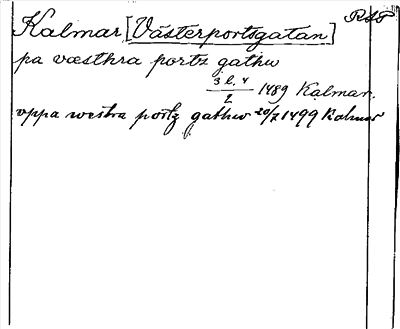 Kalmar [Västerportsgatan] RAP
pa væsthra portz gathw
3 l. 4 / 2 1489 Kalmar.
vppa westra portz gathw 20/7 1499 Kalmar